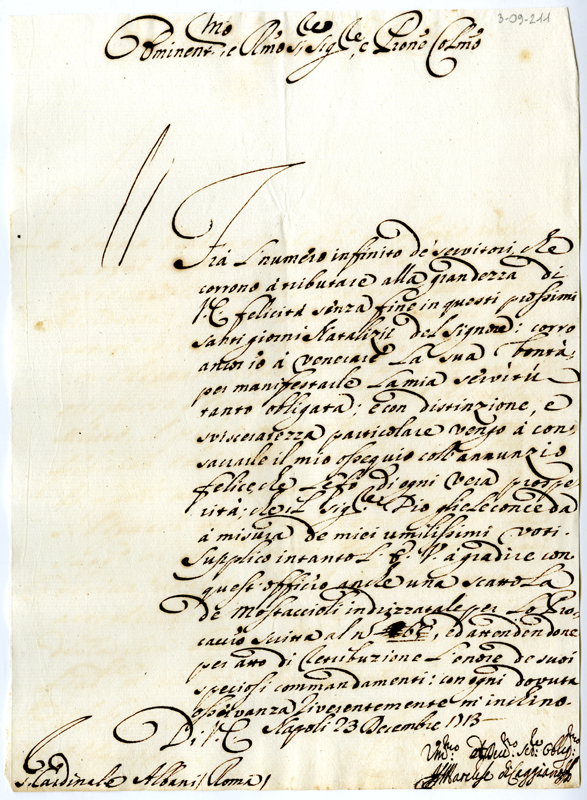 3-09-211
Eminent.mo, e Rmo Sig.re, e Prone Colmo
Frà l'numero infinito de' servitori, che
corrono à tributare alla grandezza di
V.E. felicità senza fine in questi prossimi
santi giorni Natalizii del Signore: corro
ancor io à venerare la sua bontà,
per manifestarle la mia servitù
tanto obligata; e con distinzione, e
svisceratezza particolare vengo à con,
sacrarle il mio ossequio coll'annunzio
felice, che le fò di ogni vera prospe,
rità; che il Sig.re Dio glie le conceda
à misura de miei umilissimi voti.
Supplico intanto l'E. V. à gradire con
quest'officio anche una scattola
de Mostaccioli indrizzatale per lo Pro,
caccio scritta al n., ed attendendone
per atto di retribuzione l'onore de suoi
speciosi commandamenti: con ogni dovuta
osservanza riverentemente m'inchino.
Di V.E. Napoli 23 Decembre 1713
Um.mo Serv.re Oblig.mo
S. Cardinale Albani / Roma /
Il Marchese di Caggiano